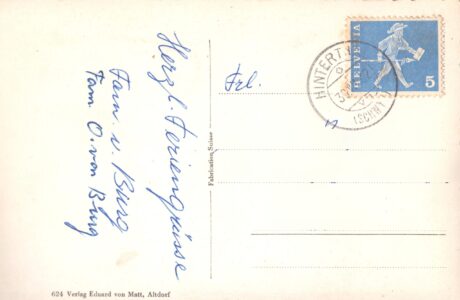 Herzl. Feriengrüsse
Fam. v. Burg
Fam. O. von Burg
Frl.
HELVETIA
5
HINTERT
(SCHWYZ)
Fabrication Suisse
624 Verlag Eduard von Matt, Altdorf